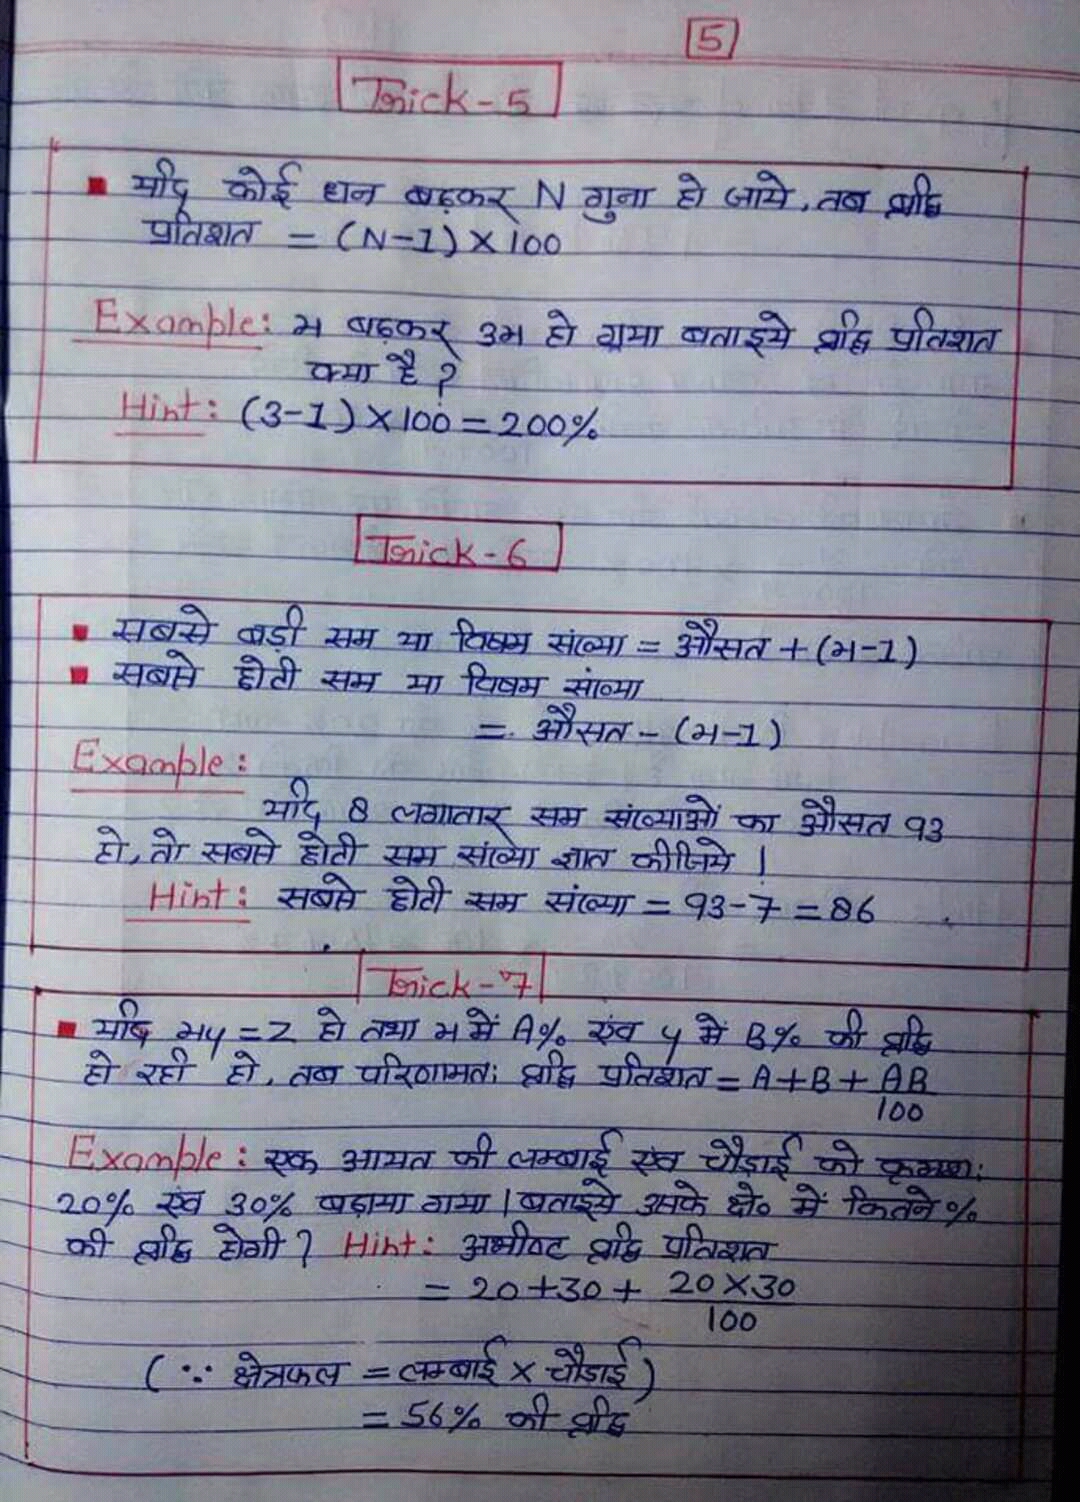 5
Trick-5
यदि कोई धन बढ़कर N गुना हो जाये, तब वृद्धि
प्रतिशत = (N-1)×100
Example: x बढ़कर 3x हो गया बताइये वृद्धि प्रतिशत
क्या है?
Hint: (3-1)×100=200%
Trick-6
सबसे बड़ी सम या विषम संख्या = औसत + (x-1)
सबसे छोटी सम या विषम संख्या
= औसत - (x-1)
Example:
यदि 8 लगातार सम संख्याओं का औसत 93
हो, तो सबसे छोटी सम संख्या ज्ञात कीजिये।
Hint: सबसे छोटी सम संख्या = 93-7=86
Trick-7
यदि xy=z हो तथा x में A% एंव y में B% की वृद्धि
हो रही हो, तब परिणामतः वृद्धि प्रतिशत = A+B+AB
100
Example: एक आयत की लम्बाई एंव चौड़ाई को क्रमशः
20% एंव 30% बढ़ाया गया। बताइये उसके क्षे० में कितने %
की वृद्धि होगी? Hint: अभीष्ट वृद्धि प्रतिशत
= 20+30+ 20×30
100
(∵ क्षेत्रफल = लम्बाई × चौडाई)
= 56% की वृद्धि